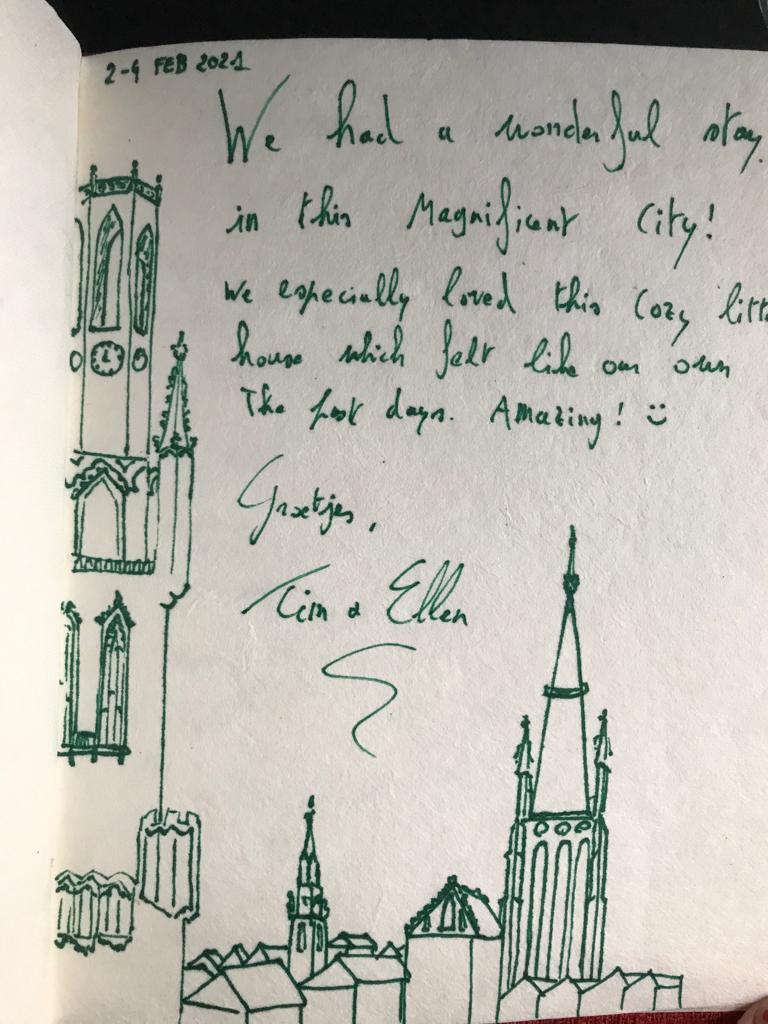 2-4 FEB 2021
We had a wonderful stay
in this Magnificent City!
We especially loved this Cozy litt
house which felt like our own
The past days. Amazing! :)
Groetjes,
Tim & Ellen